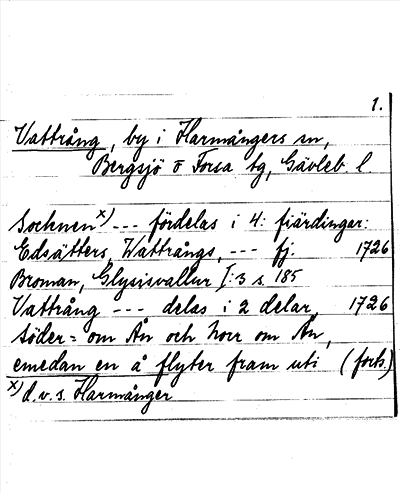 1.
Vattrång, by i Harmångers sn,
Bergsjö o Forsa tg, Gävleb. l.
Sochnen x) --- fördelas i 4: fiärdingar:
Edsätters, Wattrångs, --- fj. 1726
Broman, Glysisvallur I:3 s. 185
Vattrång --- delas i 2 delar, 1726
söder= om Ån och Norr om Ån,
emedan en å flyter fram uti (forts.)
x) d.v.s. Harmånger